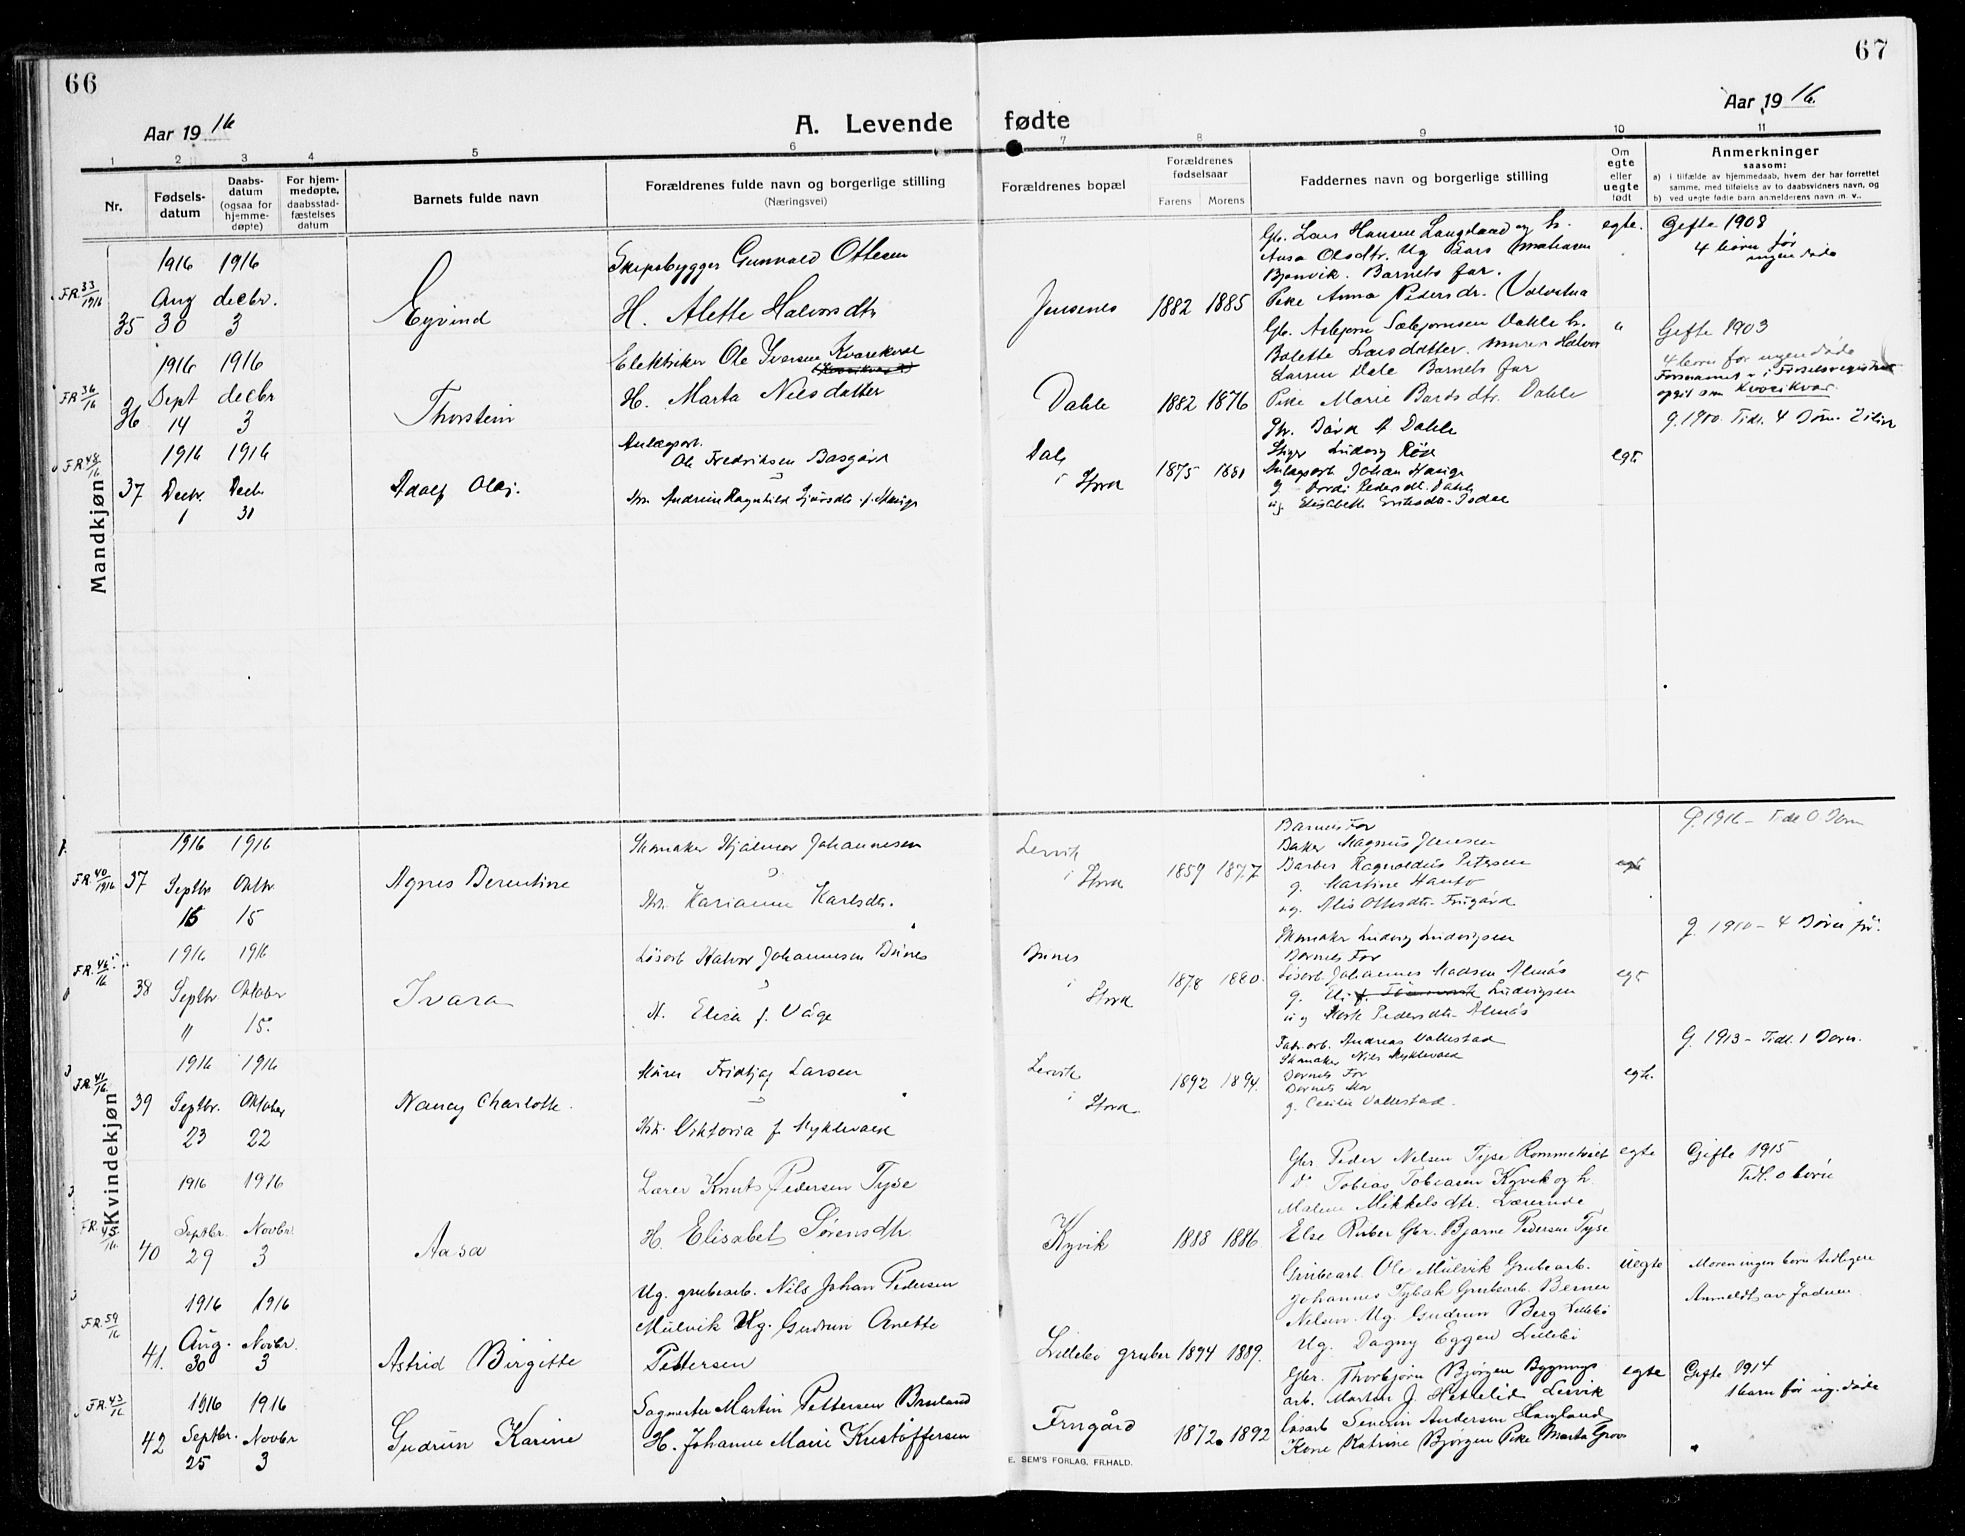 66
67
Aar 1916
A. Levende fødte
Aar 1916.
1 2 3 4 5 6 7 8 9 10 11
Nr.
Fødsels-
datum
Daabs-
datum
(ogsaa for
hjemme-
døpte)
For hjem-
medøpte,
daabsstad-
fæstelses
datum
Barnets fulde navn
Forældrenes fulde navn og borgerlige stilling
(Næringsvei)
Forældrenes bopæl
Forældrenes
fødselsaar
Farens Morens
Faddernes navn og borgerlige stilling
Om
egte
eller
uegte
født
Anmerkninger
saasom:
a) i tilfælde av hjemmedaab, hvem der har forrettet
samme, med tilføielse av to daabsvidners navn, og
b) ved uegte fødte barn anmelderens navn m. v..
Mandkjøn
FR. 33/1916
35
1916 1916
Aug decbr.
30 3
Eyvind
Skipsbygger Gunvald Ottesen
H. Alette Halvorsdtr
Jensenes
1882 1885
Gbr. Lars Hansen Langeland og h.
Ansa Olsdtr. Ug Lars
Bjønvik. Barnets far.
Pike Anna Pedersdr.
egte.
Gifte 1908
4 børn før
ingen døde
FR 36/16
36
1916 1916
Sept decbr
14 3
Thorstein
Elektriker Ole Iversen Kvarekval
H. Marta Nilsdatter
Dahle
1882 1876
Gb. Asbjørn Sæbjørnsen Dahle h.
Bolette Larsdatter. murer Halvor
Larsen Dale Barnets far
Pike Marie Bårdsdtr. Dahle
"
Gifte 1903
4 børn før ingen døde
i Fødselsregistret
opgit som Kvarikvar
FR. 48/16
37
1916 1916
Decbr. Decbr
1 31
Adolf Olaj.
Anlægsarb.
Ole Fredriksen Basgård
Hr. Andrine Ragnhild f. Hauge
Dale
i Stord
1875 1881
Gbr. Bård A Dahle
Styr Ludvig Røse
Anlægsarb Johan Hauge
g. Bordi Pedersdt. Dahle
ug. Elisabeth Eriksdtr.
egte
g. 1900. Tidl. 4 Børn. 2 i live
Kvindekjøn
FR. 40/1916
37
1916 1916
Septbr Oktbr.
16 15
Agnes Berentine
Skomaker Hjalmar Johannesen
Hr. Karianne Karlsdtr.
Lervik
i Stord
1859 1877
Barnets Far
Baker Magnus Jensen
Barber Ragnvaldus Petersen
g. Martine Hanto
ug. Alis Olsdtr. Frugård
egte
G. 1916 - Tidl 0 Børn
FR. 46/16
38
1916 1916
Septbr. Oktober
" 15.
Ivara
Løsarb Halvor Johannesen Bunes
H. Elisa f. Våge
Bunes
i Stord
1878 1880.
Skomaker Ludvig Ludvigsen
Barnets Far
Løsarb. Johannes Madsen Almås
g. Eli Ludvigsen
ug Mark Pedersdtr. Almås
egte
g. 1910 - 4 Børn før.
FR. 41/16
39
1916 1916
Septbr. Oktober
23 22
Nancy Charlotte.
Murer Fridtjof Larsen
Hr. Viktoria f. Myklevoll
Lervik
i Stord
1892 1894.
Fabr.arb. Andreas Vallestad
Skomaker Nils Myklevold
Barnets Far
Barnets Mor
g. Cecilie Vallestad.
egte.
G. 1913 - Tidl. 1 Barn.
FR. 45/16
40
1916 1916
Septbr. Novbr.
29 3
Aasa
Lærer Knut Pedersen Tyse
H. Elisabet Sørensdtr
Kyvik
1888 1886
Gbr Peder Nelsen Tyse Rommetveit
Do Tobias Tobiasen Kyvik og h.
Malene Mikkelsdtr. Lærerinde
Else Ruber Gbr. Bjarne Pedersen Tyse
egte
Gifte 1915
Tidl. 0 børn
FR. 59/16
41.
1916 1916
Aug. Novbr.
30 3
Astrid Birgitte
Ug. grubearb. Nils Johan Pedersen
Mulvik Ug. Gudrun Anette
Pettersen
Lillebø gruber
1894 1889.
Grubearb. Ole Mulvik Grubearb.
Johannes Tybak Grubearb. Berner
Nelsen. Ug. Gudrun Berg Lillebø
Ug. Dagny Eggen Lillebø
uegte
Moren ingen børn tidligere
Anmeldt av Faderen.
FR. 43/16
42
1916 1916
Septbr. Novbr
25 3
Gudrun Karine
Sagmester Martin Pettersen Bruland
H. Johanne Marie Kristoffersen
Frugård
1872. 1892
Gbr. Thorbjørn Bjørgen Bygnings
arb. Martin J. Hetlelid Lervik
Løsarb Severin Andersen Haugland
Kone Katrine Bjørgen Pike Marta Grov
egte
Gifte 1914
1 barn før ug. døde
E. SEM'S FORLAG, FR.HALD.